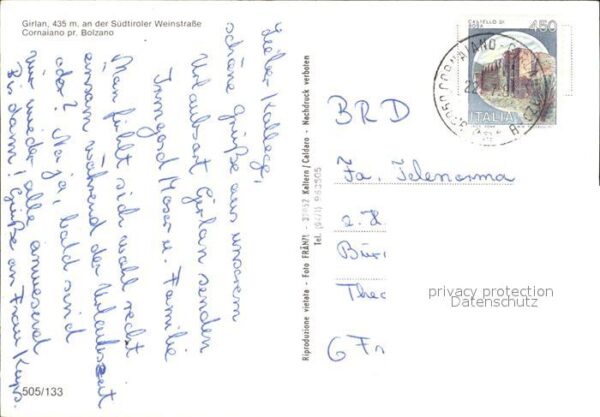 Girlan, 435 m. an der Südtiroler Weinstraße
Cornaiano pr. Bolzano
Lieber Kollege,
schöne Grüße aus unserem
Urlaubsort Girlan senden
Irmgard Moser u. Familie
Man fühlt sich wohl recht
einsam während der Urlaubszeit
oder? Na ja, bald sind
wir wieder alle anwesend
Bis dann! Grüße an Frau Kups.
505/133
Riproduzione vietata - Foto FRÄNZL - 39052 Kaltern/Caldaro - Nachdruck verboten
Tel. (0471) 963505
CASTELLO DI
450
ITALIA
BRD
Fa. Telenorma
z. H.
Büri
Theo
6 Fr
privacy protection
Datenschutz